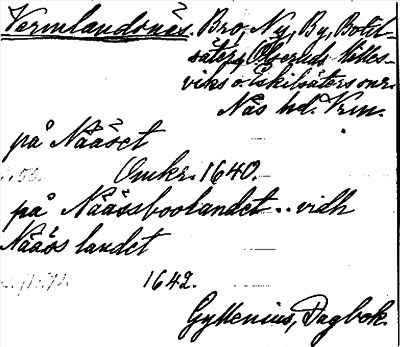 Vermlandsnäs. Bro, Ny, By, Botil-
säters, Ölseruds Milles-
viks o. Eskilsäters snr.
Näs hd. Vrm.
på Nääset
Omkr. 1640.
på Näässboolandet .. vidh
Näääs landet
1642.
Gyllenius, Dagbok.